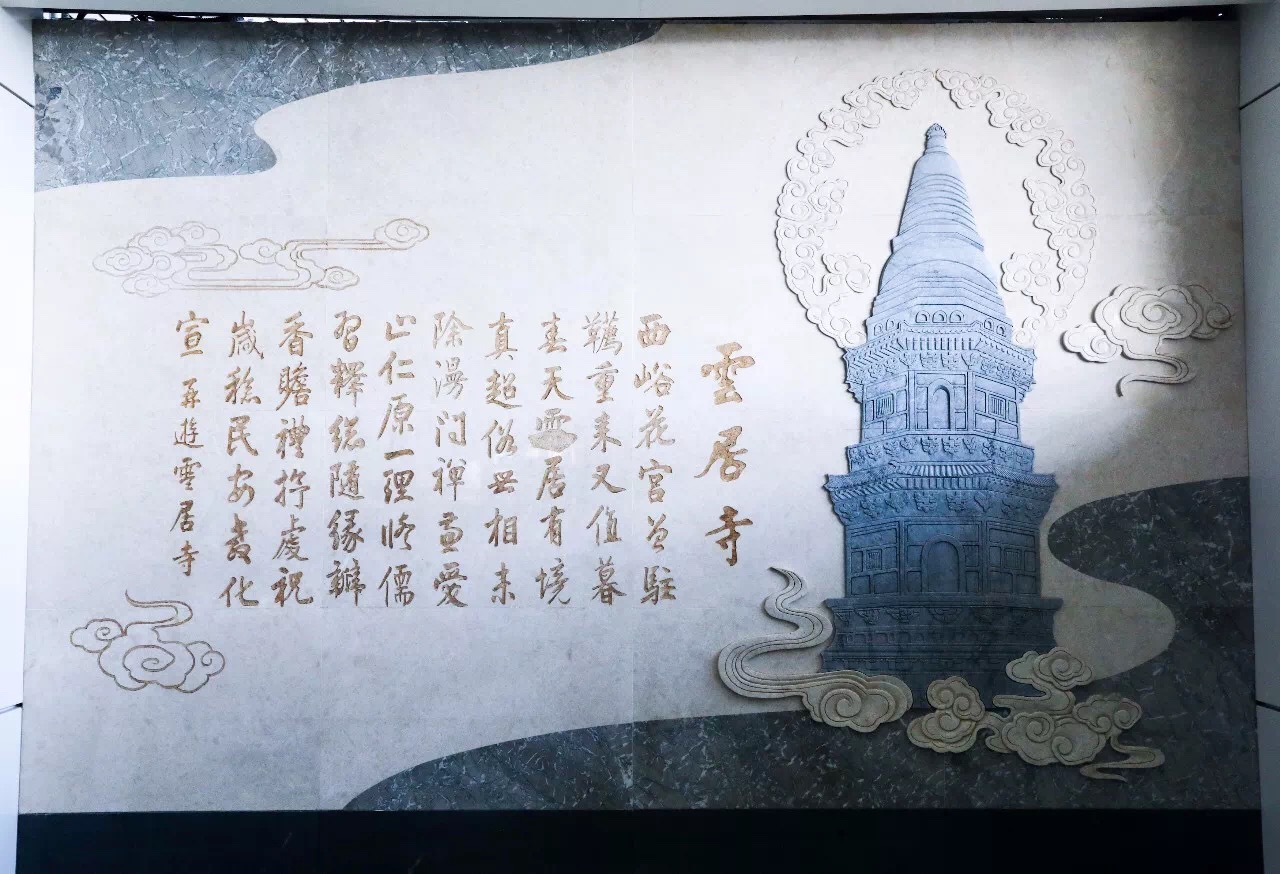 雲居寺
西峪花宮曾駐
韉重來又值暮
春天雲居有境
真超俗世相未
除漫問禪兼愛
止仁原一理修儒
習釋總隨緣瓣
香瞻禮抒虔祝
歲稔民安教化
宣 再遊雲居寺